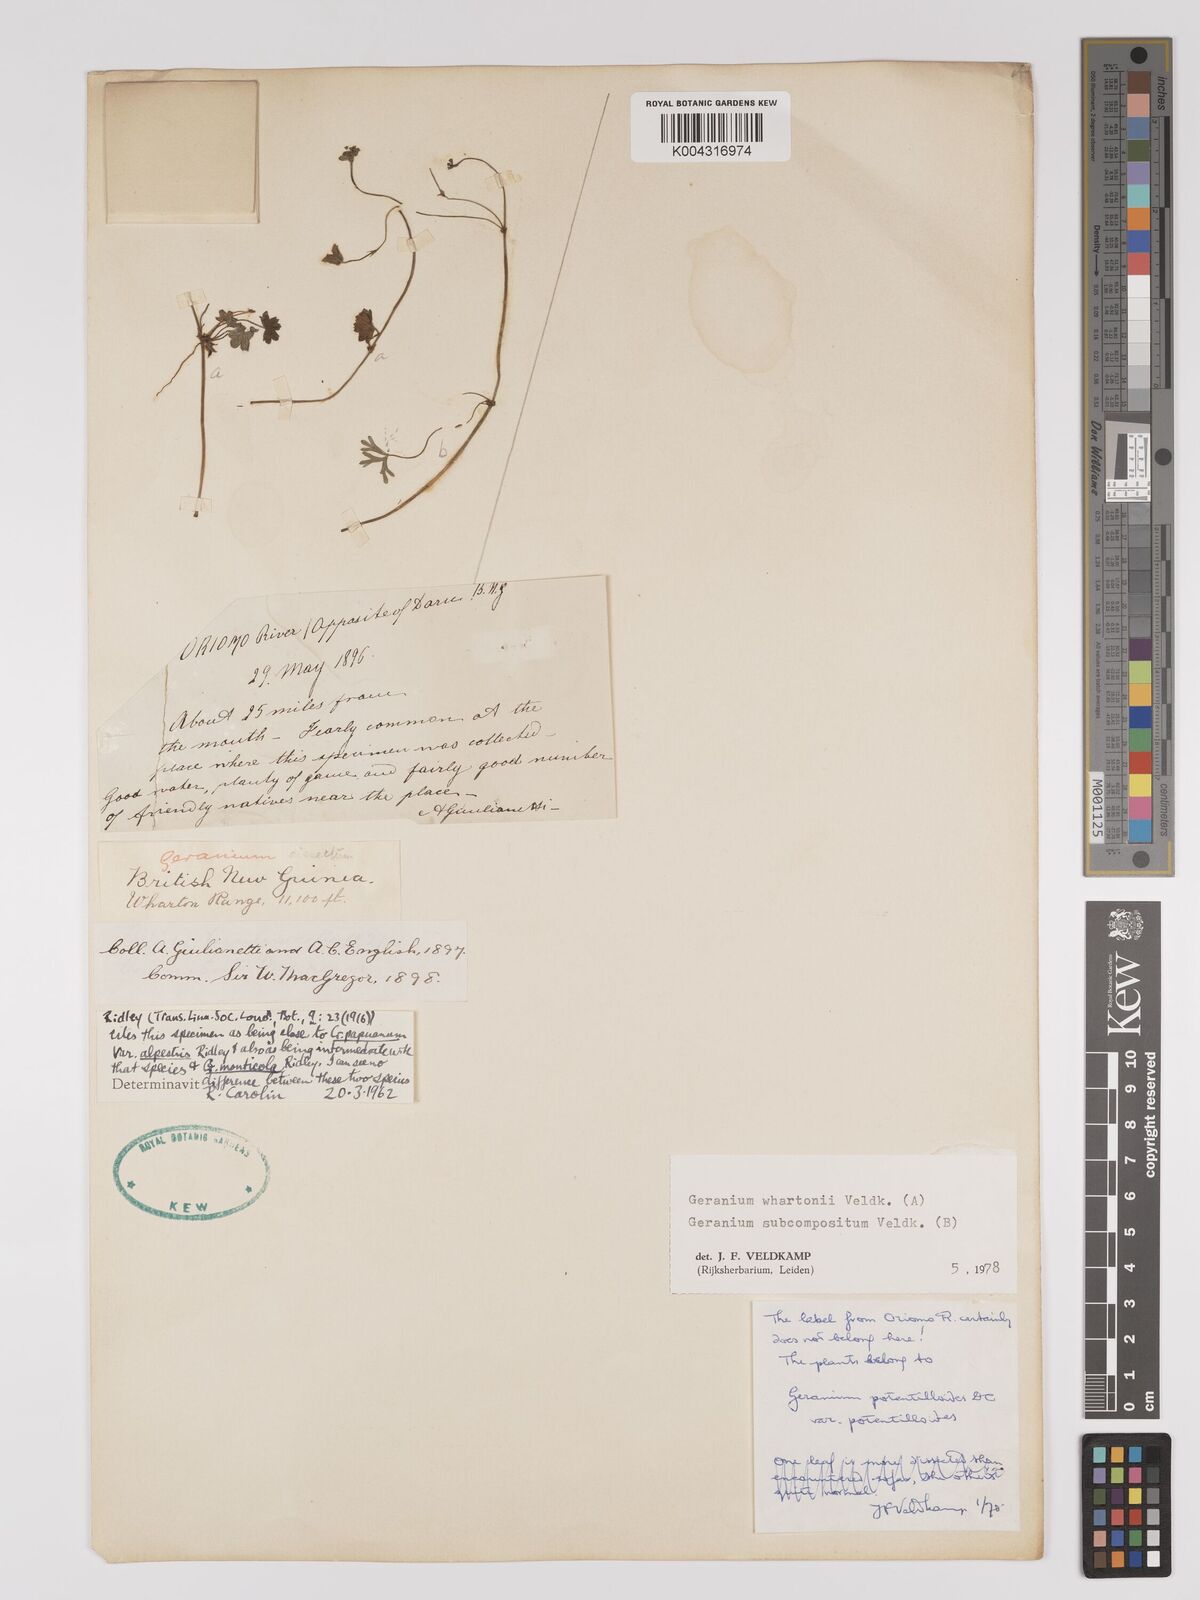 ROYAL BOTANIC GARDENS KEW
K004316974
a
a
b
ORIOMO River / Opposite of Daru B.N.g
29 May 1896.
About 25 miles from
the mouth - Fearly common at the
place where this specimen was collected -
Good water, planty of game and fairly good number
of friendly natives near the place -
A Giulianetti -
Geranium
British New Guinea.
Wharton Range, 11,100 ft.
Coll. A. Giulianetti and A. C. English, 1897.
Comm. Sir W. MacGregor, 1898.
Ridley (Trans. Linn. Soc. Lond., Bot., 9: 23 (1916))
cites this specimen as being close to G. papuanum
var. alpestris Ridley & also as being intermediate with
that species & G. monticola Ridley. I can see no
Determinavit difference between these two species
R. Carolin 20.3.1962
ROYAL BOTANIC GARDENS
KEW
Geranium whartonii Veldk. (A)
Geranium subcompositum Veldk. (B)
det. J. F. VELDKAMP
(Rijksherbarium, Leiden) 5, 1978
The label from Oriomo R. certainly
does not belong here!
The plants belong to
Geranium potentilloides DC
var. potentilloides
one leaf is more dissected than
encountered sofar, the other is
quite normal.
JFVeldkamp 1/75
inches
centimetres
Density
Don Williams
M001125
Royal Botanic Gardens
Kew
0 1 2 3 4 5 6 7 8 9 10
cm
copyright reserved